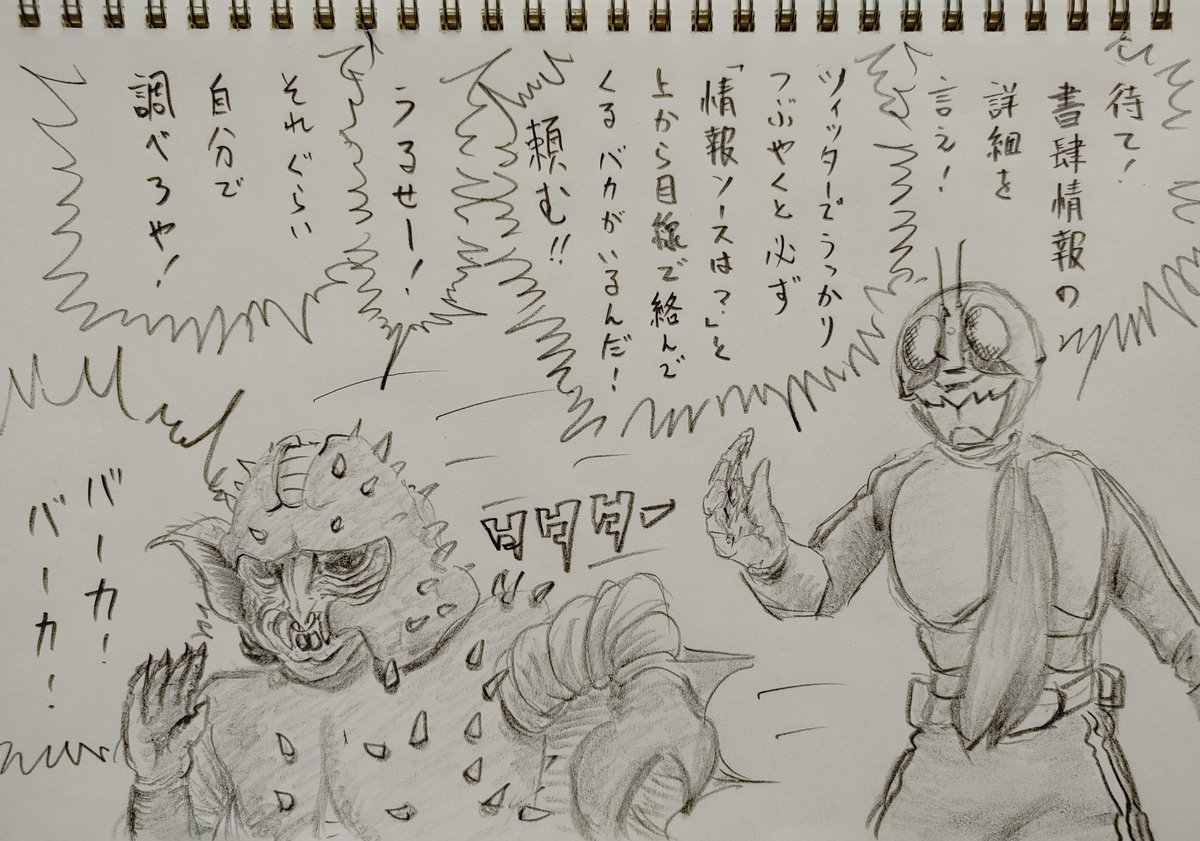 待て!
書肆情報の
詳細を
言え!
ツイッターでうっかり
つぶやくと必ず
「情報ソースは?」と
上から目線で絡んで
くるバカがいるんだ!
頼む!!
うるせー!
それぐらい
自分で
調べろや!
バーカ!
バーカ!